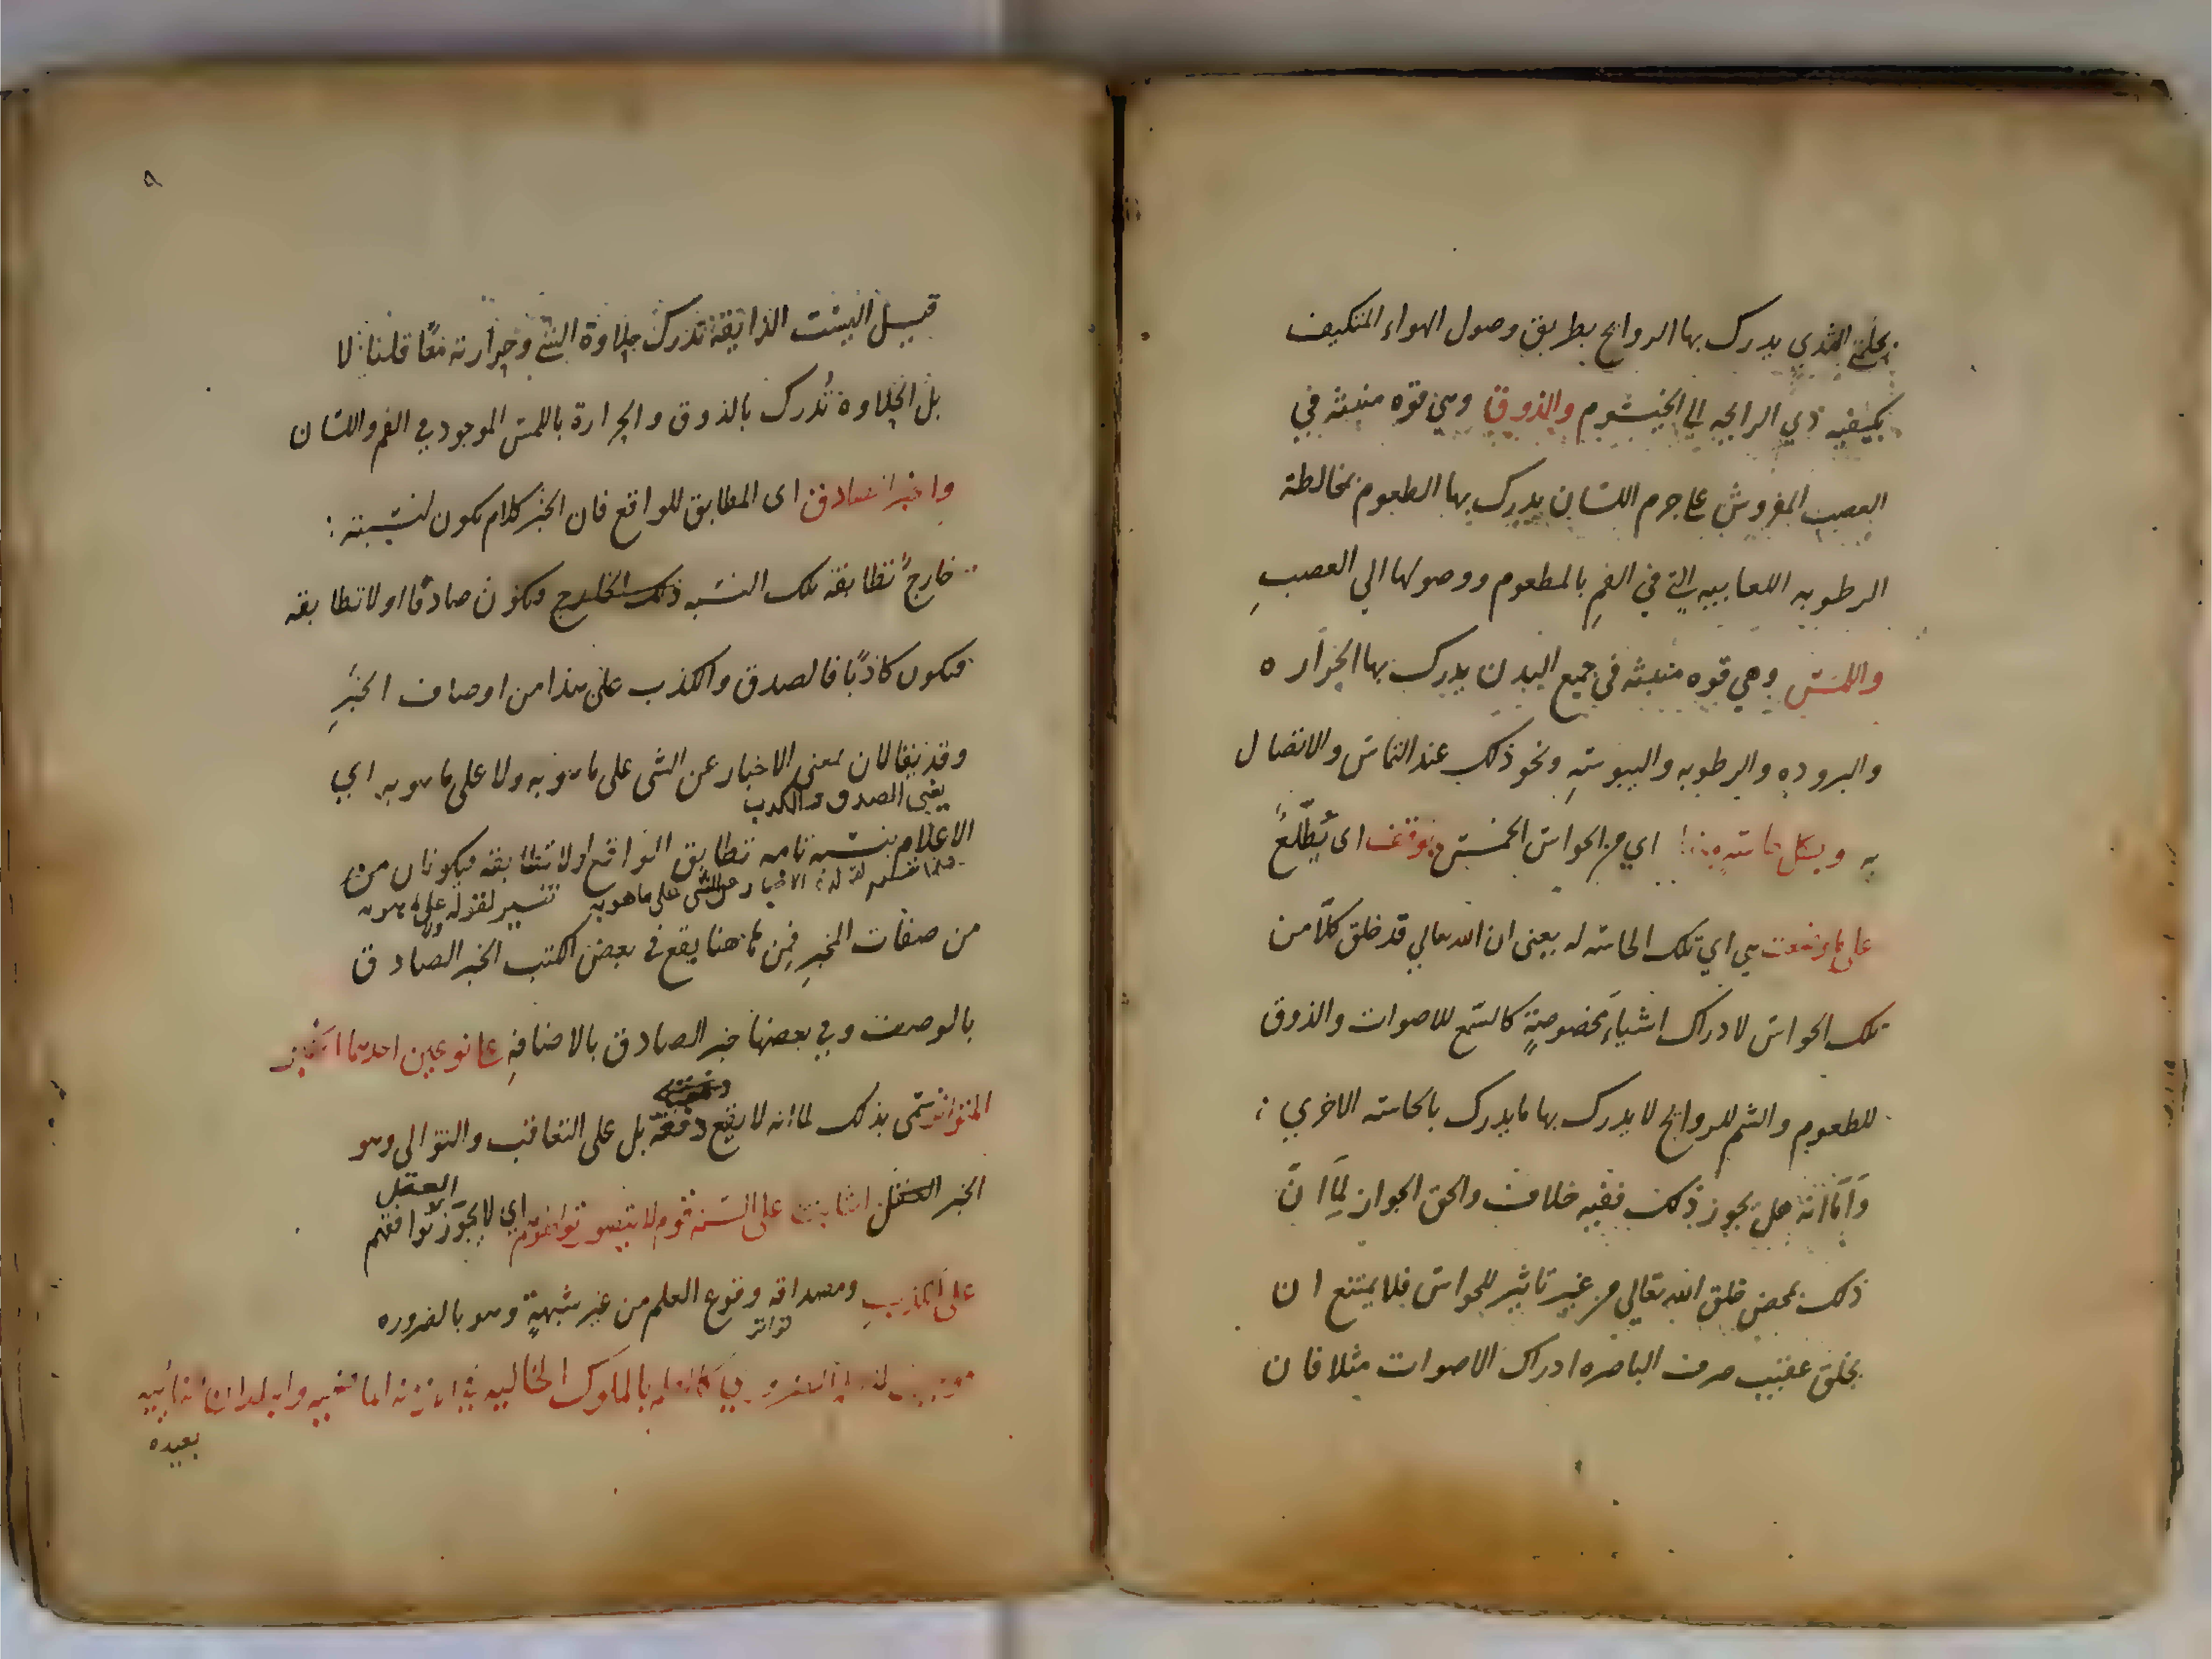 بحلمتي الثدي يدرك بها الروايح بطريق وصول الهواء المتكيف
بكيفيه ذي الرايحه الي الخيشوم والذوق وهي قوه منبثه في
العصب المفروش علي جرم اللسان يدرك بها الطعوم بمخالطة
الرطوبه اللعابيه التي في الفم بالمطعوم ووصولها الي العصبِ
واللمس وهي قوه منبثه في جميع البدن يدرك بها الحراره
والبروده والرطوبه واليبوسةِ ونحو ذلك عند التماس والاتصال
به وبكل حاسةٍ منها اي من الحواس الخمس يوقف اى يُطّلعُ
على ما وضعت هي اي تلك الحاسه له يعنى ان الله تعالي قد خلق كلاًّ من
تلك الحواس لادراك اشياءَ مخصوصةٍ كالسمع للاصوات والذوق
للطعوم والشم للروايح لا يدرك بها ما يدرك بالحاسه الاخري
وَاَمّا انّه هل يجوز ذلك ففيه خلاف والحق الجواز لِمَا انّ
ذلك بمحض خلق الله تعالي من غير تاثير للحواس فلا يمتنع ان
يخلق عقيب صرف الباصره ادراك الاصوات مثلا فان
٩
قيل اليست الذايقة تدرك حلاوة الشي وحرارته معًا قلنا لا
بل الحلاوة تُدرك بالذوق والحرارة باللمس الموجود في الفم واللسان
والخبر الصادق اى المطابق للواقع فان الخبر كلام يكون لنسبته
خارجٌ تطابقه تلك النسبه ذلك الخارج فيكون صادقًا او لا تطابقه
فيكون كاذبًا فالصدق والكذب على هذا من اوصاف الخبرِ
وقد يقالان بمعنى الاخبار عن الشى على ما هو به ولا على ما هو به اي
يعنى الصدق والكذب
الاعلام بنسبه تامه تطابق الواقع او لا تطابقه فيكونان من
الاخبار عن الشى على ما هو به تفسير لقوله ولا على ما هو به
من صفات المخبرِ فمِن هاهنا يقع في بعض الكتب الخبر الصادق
بالوصف وفي بعضها خبر الصادق بالاضافهِ علي نوعين احدهما الخبر
دفعة
المتواتر سمى بذلك لما انه لا يقع دفعة بل على التعاقب والتوالى وهو
الخبر الثابت على السنة قوم لا يتصور تواطؤهم اي لا يجوّز توافقهم
العقل
على الكذبِ ومصداقه وقوع العلم من غير شبهةٍ وهو بالضروره
تواتر
موجب للعلم الضروري كالعلم بالملوك الخاليه في الازمنه الماضيه والبلدان النائيه
بعيده